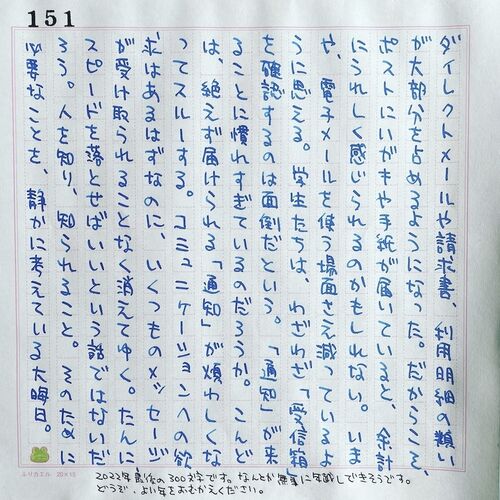 151
ダイレクトメールや請求書、利用明細の類い
が大部分を占めるようになった。だからこそ、
ポストにハガキや手紙が届いていると、余計
にうれしく感じられるのかもしれない。いま
や、電子メールを使う場面さえ減っているよ
うに思える。学生たちは、わざわざ「受信箱」
を確認するのは面倒だという。「通知」が来
ることに慣れすぎているのだろうか。こんど
は、絶えず届けられる「通知」が煩わしくな
ってスルーする。コミュニケーションへの欲
求はあるはずなのに、いくつものメッセージ
が受け取られることなく消えてゆく。たんに
スピードを落とせばいいという話ではないだ
ろう。人を知り、知られること。そのために
必要なことを、静かに考えている大晦日。
ふりカエル 20×15
2022年最後の300文字です。なんとか無事に年越しできそうです。
どうぞ、よい年をおむかえください。